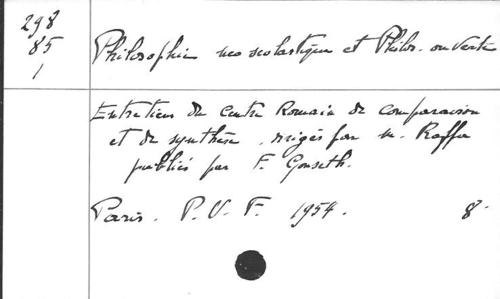 298
85
1
Philosophie neo scolastique et Philos. ouverte
Entretiens du Centre Romain de comparaison
et de synthèse, dirigés par M. Raffa
publiés par F. Gonseth.
Paris. P. U. F. 1954. 8°